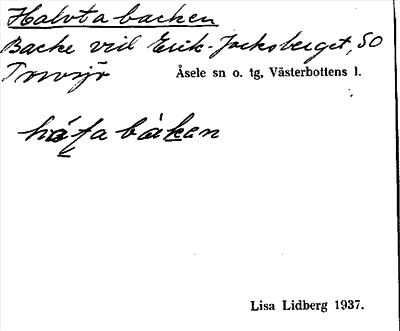 Halvta backen
Backe vid Erik-Jacksberget, SO
Åsele sn o. tg, Västerbottens l.
håfa båkan
Lisa Lidberg 1937.